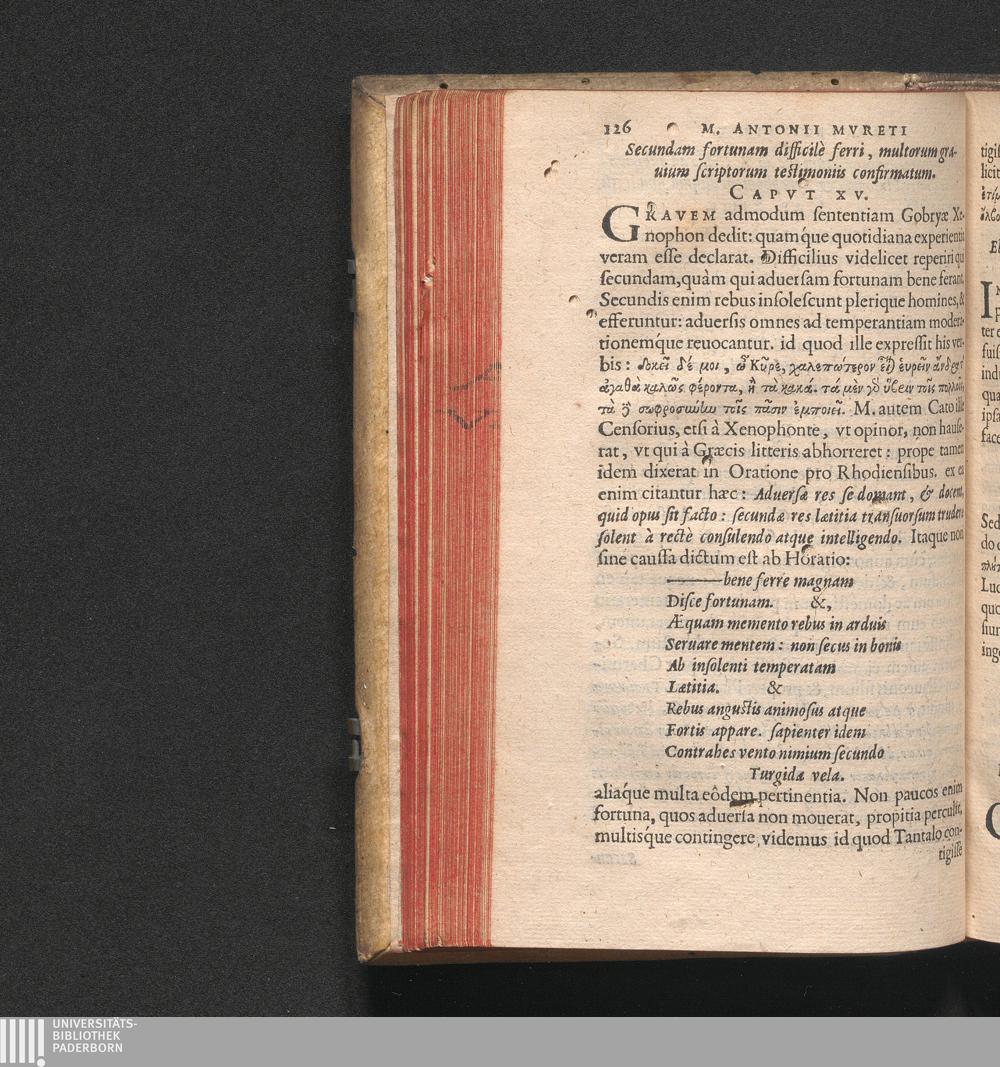 126 M. ANTONII MVRETI
Secundam fortunam difficilè ferri, multorum gra-
uium ſcriptorum teſtimoniis confirmatum.
CAPVT XV.
GRAVEM admodum ſententiam Gobryæ Xe-
nophon dedit: quamq́ue quotidiana experientia
veram eſſe declarat. Difficilius videlicet reperiri qui
ſecundam, quàm qui aduerſam fortunam bene ferant.
Secundis enim rebus inſoleſcunt plerique homines, &
efferuntur: aduerſis omnes ad temperantiam modera-
tionemque reuocantur. id quod ille expreſſit his ver-
bis: δοκεῖ δέ μοι, ὦ Κῦρε, χαλεπώτερον εἶ) εὑρεῖν ἄνδρα τ̓
ἀγαθὰ καλῶς φέροντα, ἢ τὰ κακά. τὰ μὲν γὸ ὕβριν τοῖς πολλοῖς,
τὰ ȣ̓ σωφροσύνην τοῖς πᾶσιν ἐμποιεῖ. M. autem Cato ille
Cenſorius, etſi à Xenophonte, vt opinor, non hauſe-
rat, vt qui à Græcis litteris abhorreret: prope tamen
idem dixerat in Oratione pro Rhodienſibus. ex ea
enim citantur hæc: Aduerſæ res ſe domant, & docent,
quid opus ſit facto: ſecundæ res lætitia tranſuorſum trudere
ſolent à rectè conſulendo atque intelligendo. Itaque non
ſine cauſſa dictum eſt ab Horatio:
——— bene ferre magnam
Diſce fortunam. &,
Æquam memento rebus in arduis
Seruare mentem: non ſecus in bonis
Ab inſolenti temperatam
Lætitia. &
Rebus anguſtis animoſus atque
Fortis appare. ſapienter idem
Contrahes vento nimium ſecundo
Turgida vela.
aliaq́ue multa eôdem pertinentia. Non paucos enim
fortuna, quos aduerſa non mouerat, propitia perculit,
multisq́ue contingere videmus id quod Tantalo con-
tigiſſe
UNIVERSITÄTS-
BIBLIOTHEK
PADERBORN